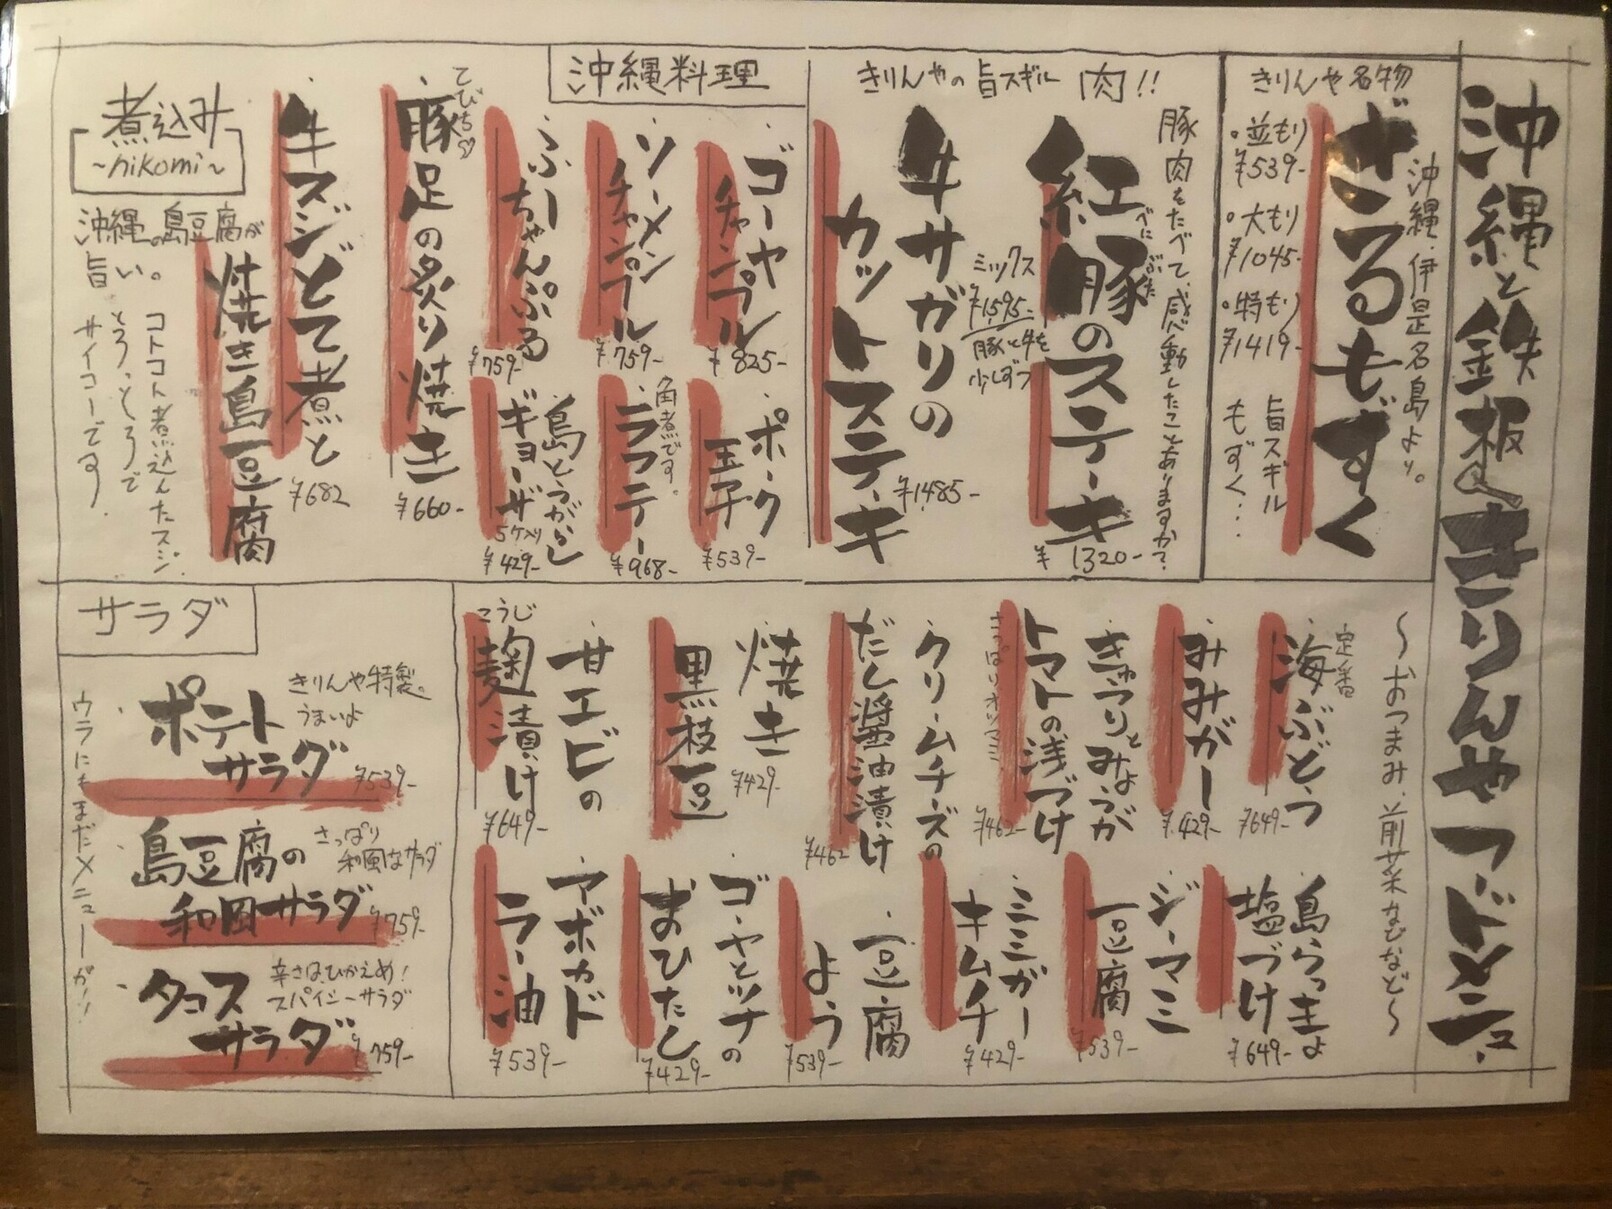 沖縄と鉄板 きりんや フードメニュー
きりんや名物
ざるもずく
沖縄・伊是名島より。
・並もり
¥539-
・大もり
¥1045-
・特もり
¥1419-
旨スギル
もずく…
きりんやの旨スギル 肉!!
豚肉をたべて、感動したことありますか?
紅豚のステーキ
べにぶた
¥1320-
ミックス
¥1595-
豚と牛を
少しずつ
牛サガリの
カットステーキ
¥1485-
沖縄料理
・ゴーヤ
チャンプル
¥825-
・ソーメン
チャンプル
¥759-
・ふーちゃんぷる
¥759-
・ポーク
玉子
¥539-
・ラフテー
角煮です。
¥968-
・島とうがらし
ギョーザ
5ケ入り
¥429-
・豚足の炙り焼き
てびち♡
¥660-
煮込み
~nikomi~
・牛スジとて煮と
焼き島豆腐
¥682
沖縄の島豆腐が
旨い。
コトコト煮込んだスジ
とろっとろで
サイコーです。
~おつまみ、前菜なびなど~
・海ぶどう
定番
¥649-
・みみがー
¥429-
・きゅうりとみょうが
トマトの浅づけ
さっぱりオツマミ
¥462-
・クリームチーズの
だし醤油漬け
¥462
・焼き
黒枝豆
¥429-
・甘エビの
麹漬け
こうじ
¥649-
・島らっきょ
塩づけ
¥649-
・ジーマミ
豆腐
¥539-
・ミミガー
キムチ
¥429-
・豆腐
よう
¥539-
・ゴーヤとツナの
おひたし
¥429-
・アボカド
ラー油
¥539-
サラダ
・ポテト
サラダ
きりんや特製。
うまいよ
¥539-
・島豆腐の
和風サラダ
さっぱり
和風なサラダ
¥759-
・タコス
サラダ
辛さはひかえめ!
スパイシーサラダ
¥759-
ウラにもまだメニューが!!